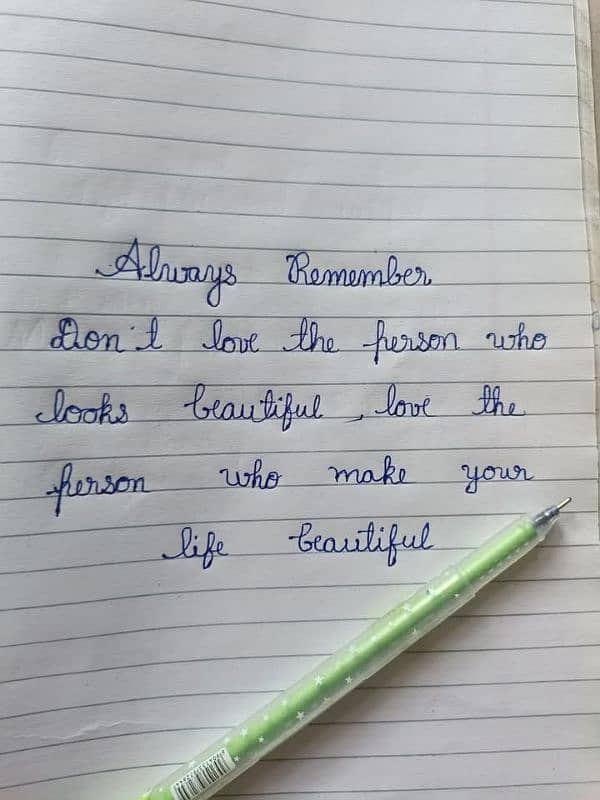 Always Remember
Don't love the person who
looks beautiful, love the
person who make your
life beautiful